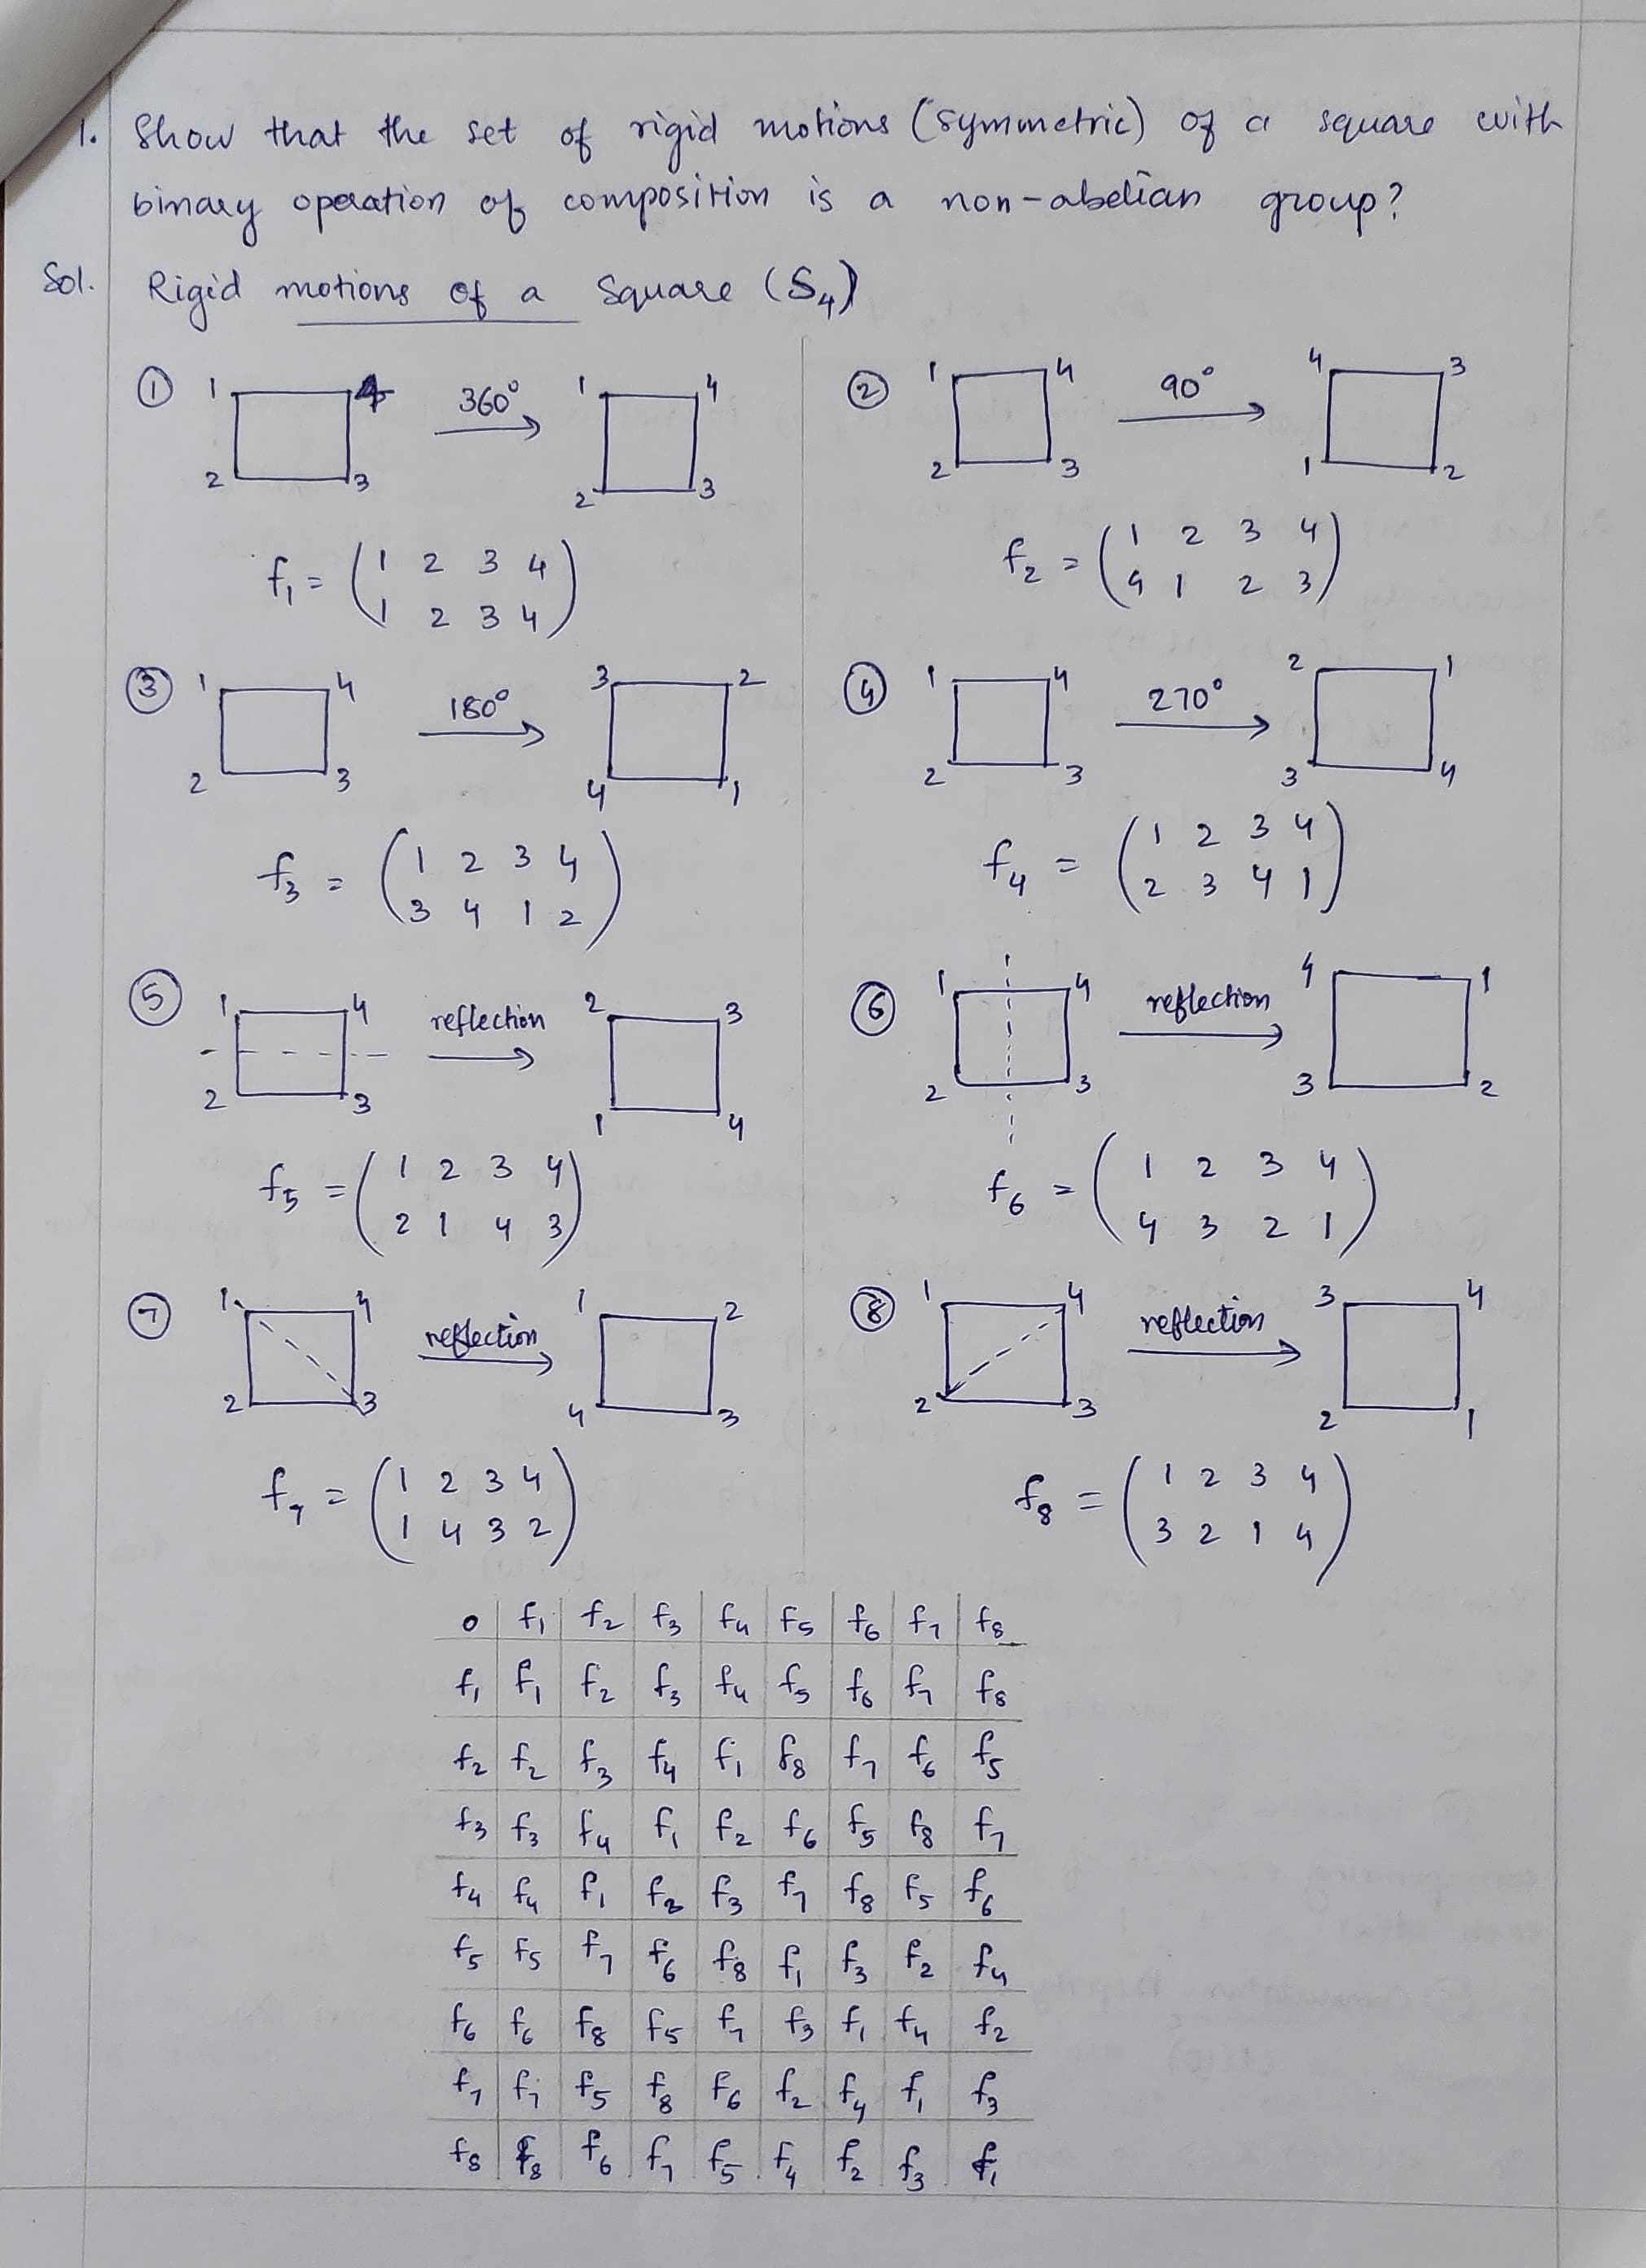 1. Show that the set of rigid motions (symmetric) of a square with
binary operation of composition is a non-abelian group?
Sol. Rigid motions of a Square (S₄)
① 1 4 2 3 360° 1 4 2 3
f₁ = ( 1 2 3 4
1 2 3 4 )
② 1 4 2 3 90° 4 3 1 2
f₂ = ( 1 2 3 4
4 1 2 3 )
③ 1 4 2 3 180° 3 2 4 1
f₃ = ( 1 2 3 4
3 4 1 2 )
④ 1 4 2 3 270° 2 1 3 4
f₄ = ( 1 2 3 4
2 3 4 1 )
⑤ 1 4 2 3 reflection 2 3 1 4
f₅ = ( 1 2 3 4
2 1 4 3 )
⑥ 1 4 2 3 reflection 4 1 3 2
f₆ = ( 1 2 3 4
4 3 2 1 )
⑦ 1 4 2 3 reflection 1 2 4 3
f₇ = ( 1 2 3 4
1 4 3 2 )
⑧ 1 4 2 3 reflection 3 4 2 1
f₈ = ( 1 2 3 4
3 2 1 4 )
o f₁ f₂ f₃ f₄ f₅ f₆ f₇ f₈
f₁ f₁ f₂ f₃ f₄ f₅ f₆ f₇ f₈
f₂ f₂ f₃ f₄ f₁ f₈ f₇ f₆ f₅
f₃ f₃ f₄ f₁ f₂ f₆ f₅ f₈ f₇
f₄ f₄ f₁ f₂ f₃ f₇ f₈ f₅ f₆
f₅ f₅ f₇ f₆ f₈ f₁ f₃ f₂ f₄
f₆ f₆ f₈ f₅ f₇ f₃ f₁ f₄ f₂
f₇ f₇ f₅ f₈ f₆ f₂ f₄ f₁ f₃
f₈ f₈ f₆ f₇ f₅ f₄ f₂ f₃ f₁